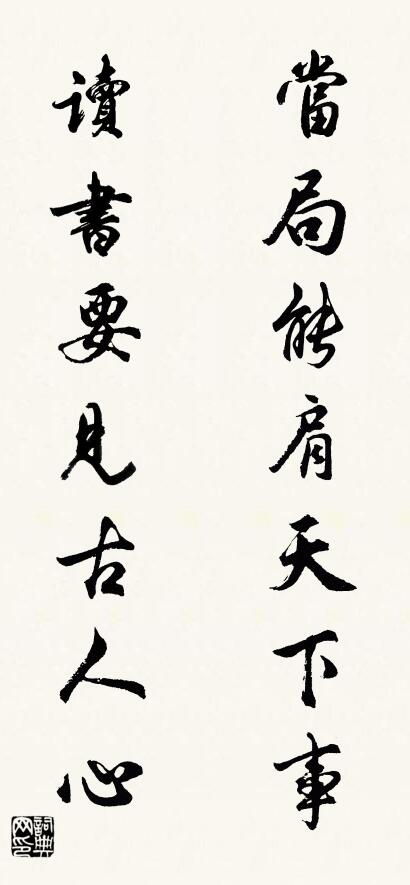 當局能肩天下事
讀書要見古人心
詞典网印